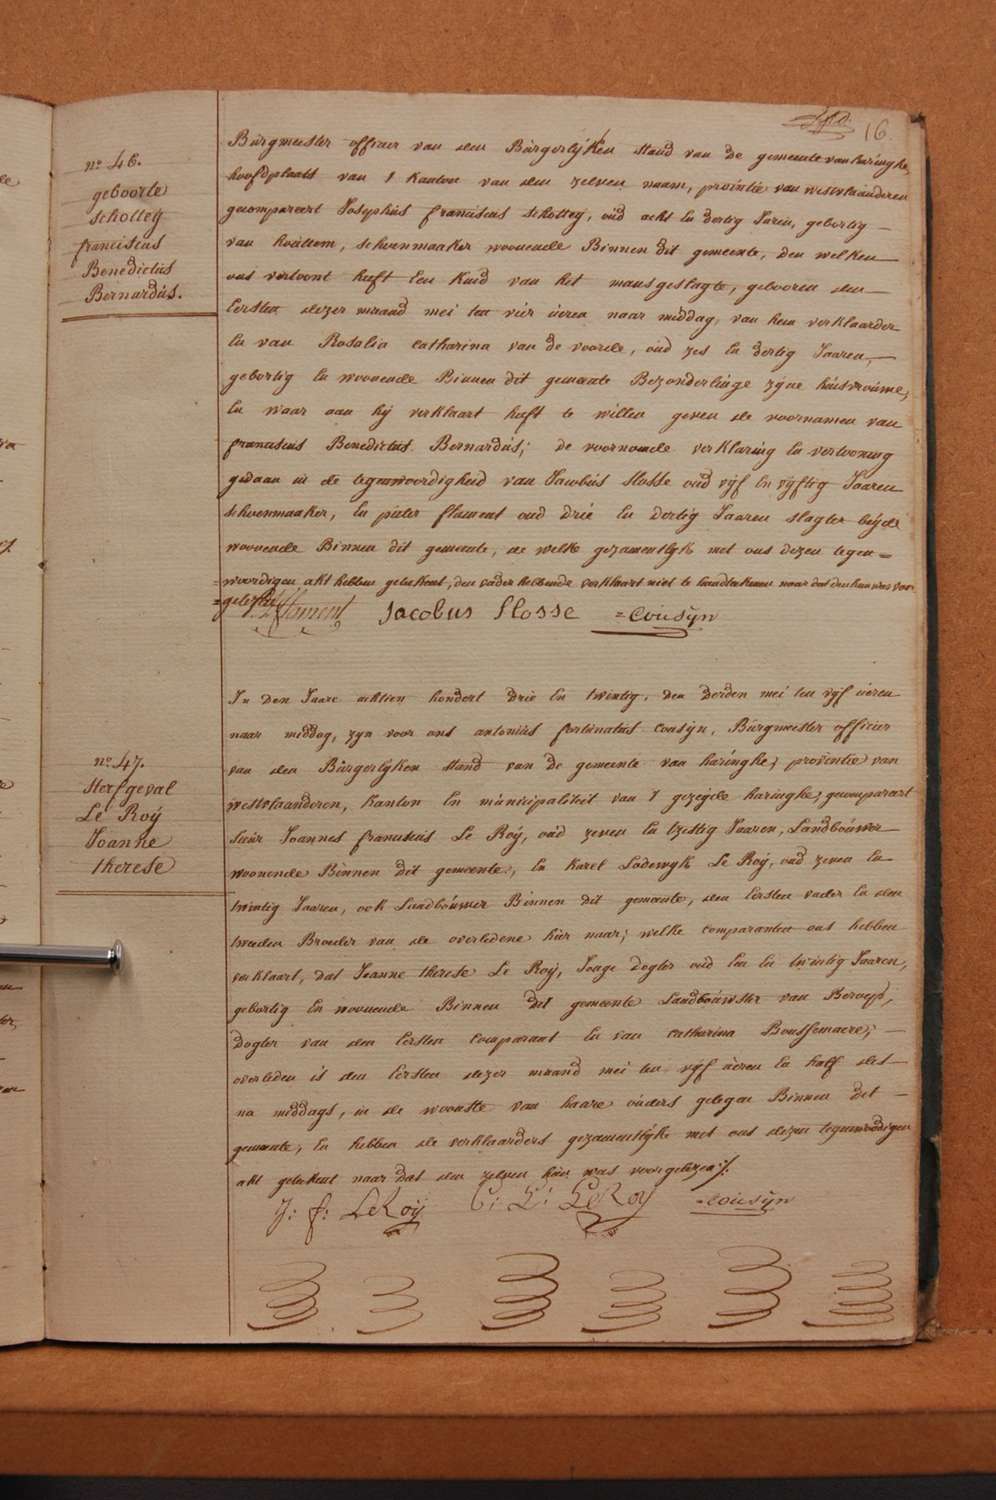 16.
n.º 46.
geboorte
schottey
franciscus
Benedictus
Bernardus.
Burgmeester officier van den Burgerlyken stand van de gemeente van haringhe,
hoofdplaats van 't Kanton van den zelven naam, provintie van westvlaanderen
gecompareert Josephus franciscus schottey, oud acht En dertig Jaren, geboortig
van houttem, schoenmaaker woonende Binnen dit gemeente, den welken
ons vertoont heeft Een Kind van het mansgeslagte, gebooren den
Eersten dezer maand mei ten vier üeren naar middag, van hem verklaarder
En van Rosalia Catharina van de voorde, oud zes En dertig Jaaren,
gebortig En woonende Binnen dit gemeente Bezonderlinge zyne huisvrouwe,
En waar aan hy verklaart heeft te willen geven de voornamen van
franciscus Benedictus Bernardus; de voornoemde verklaring En vertooning
gedaan in de tegenwoordigheid van Jacobus Slosse oud vyf En vyftig Jaaren
schoenmaaker, En pieter flament oud drie En dertig Jaaren slagter beyde
woonende Binnen dit gemeente, de welke gezamentlyk met ons dezen tegen=
=woordigen akt hebben getekent, den vader hebbende verklaart niet te handtekenen naar dat den hun was voor
=gelezen
flament Jacobus Slosse =Cousyn
n.º 47.
Sterfgeval
Le Roÿ
Joanne
therese
In den Jaare achtien hondert drie En twintig, den derden mei ten vyf üeren
naar middag, zyn voor ons antonius fortunatus Cousyn, Burgmeester officier
van den Burgerlyken stand van de gemeente van haringhe, provintie van
westvlaanderen, Kanton En municipaliteit van 't gezeyde haringhe, gecompareert
sieur Joannes franciscus Le Roÿ, oud zeven En tzestig Jaaren, Landbouwer
woonende Binnen dit gemeente, En Karel Lodewyk Le Roÿ, oud zeven En
twintig Jaaren, ook Landbouwer Binnen dit gemeente, den Eersten vader En den
tweeden Broeder van de overledene hier naar; welke comparanten ons hebben
verklaart, dat Jeanne therese Le Roÿ, Jonge dogter oud Een En twintig Jaaren,
gebortig En woonende Binnen dit gemeente Landbouwster van Beroep,
dogter van den Eersten Comparant En van Catharina Boussemaere;
overleden is den Eersten dezer maand mei ten vyf üeren En half des
na middags, in de woonste van haare ouders gelegen Binnen dit
gemeente, En hebben de verklaarders gezamentlyke met ons dezen tegenwoordigen
akt getekent naar dat den zelven hun was voorgelezen ./.
J: f: LeRoÿ C: L: LeRoy =Cousyn